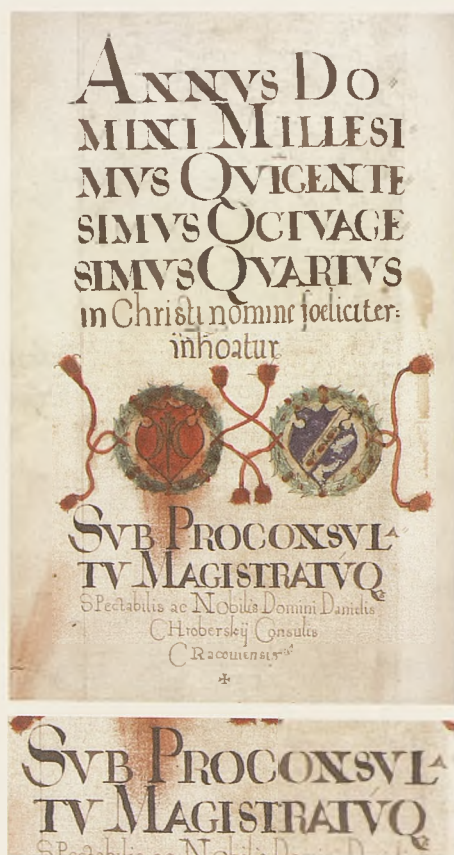 ANNVS DO
MINI MILLESI
MVS QVIGENTE
SIMVS OCTVAGE
SIMVS QVARTVS
in Christi nomine foeliciter:
inhoatur
SVB PROCONSVLA
TV MAGISTRATVQ
SPectabilis ac Nobilis Domini Danielis
CHroberskÿ Consulis
CRacouiensis
SVB PROCONSVLA
TV MAGISTRATVQ
SPectabilis ac Nobilis Domini Danielis